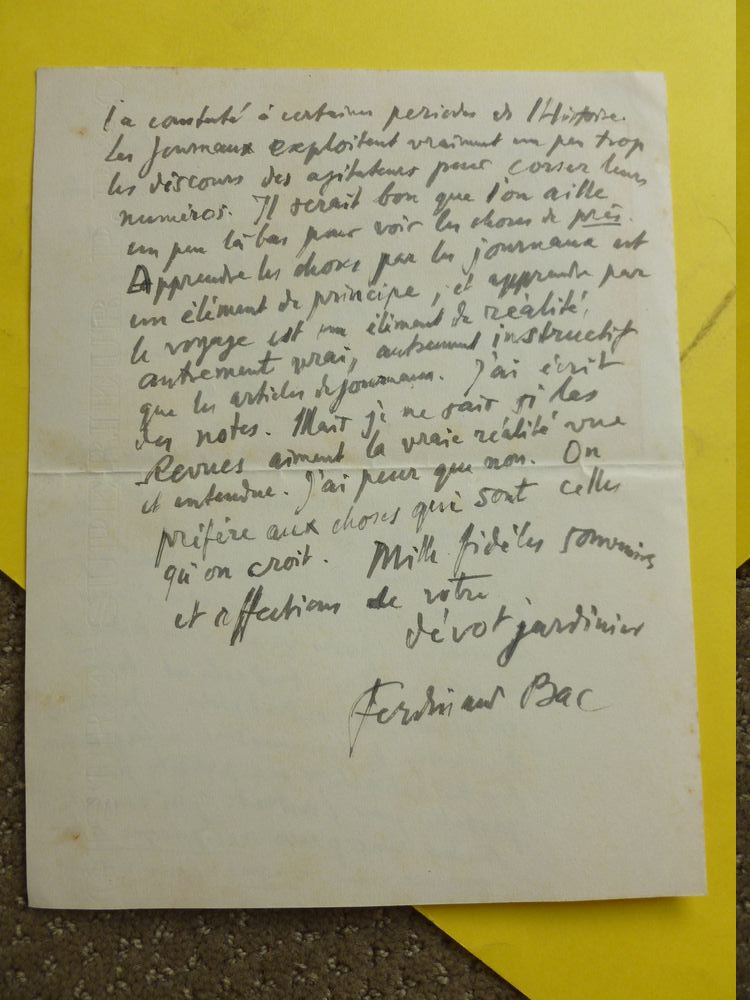 l'a constaté à certaines periodes de l'Histoire.
Les Journaux exploitent vraiment un peu trop
les discours des agitateurs pour corser leurs
numéros. Il serait bon que l'on aille
un peu là bas pour voir les choses de près.
Apprendre les choses par les journaux est
un élément de principe, et apprendre par
le voyage est un élément de réalité,
autrement vrai, autrement instructif
que les articles de Journaux. J'ai écrit
des notes. Mais je ne sais si les
Revues aiment la vraie réalité vue
et entendue. J'ai peur que non. On
préfère aux choses qui sont celles
qu'on croit. Mille fidèles souvenirs
et affections de votre
dévot jardinier
Ferdinand Bac